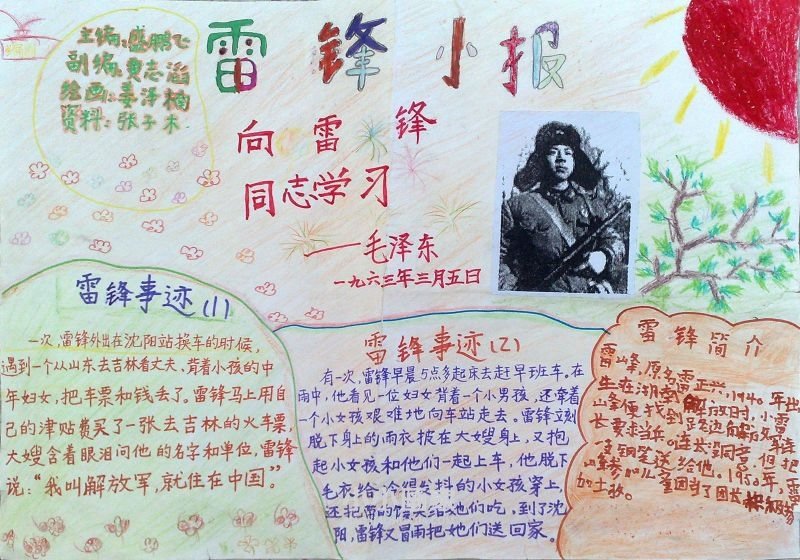 雷锋小报
主编:盛鹏飞
副编:黄志滔
绘画:姜泽楠
资料:张子木
向雷锋
同志学习
——毛泽东
一九六三年三月五日
雷锋事迹(1)
一次,雷锋外出在沈阳站换车的时候,
遇到一个从山东去吉林看丈夫,背着小孩的中
年妇女,把车票和钱丢了。雷锋马上用自
己的津贴费买了一张去吉林的火车票,
大嫂含着眼泪问他的名字和单位,雷锋
说:“我叫解放军,就住在中国。”
雷锋事迹(2)
有一次,雷锋早晨5点多起床去赶早班车。在
雨中,他看见一位妇女背着一个小男孩,还牵着
一个小女孩艰难地向车站走去。雷锋立刻
脱下身上的雨衣披在大嫂身上,又抱
起小女孩和他们一起上车,他脱下
毛衣给冷得发抖的小女孩穿上,
还把带的馒头给她们吃,到了沈
阳,雷锋又冒雨把她们送回家。
雷锋简介
雷峰,原名雷正兴,1940年出
生在湖南 解放时,小雷
山峰便找到 路边解放军
长要求当兵,连长没同意,但把
支钢笔送给他。1950年,雷
当了团
加土改。